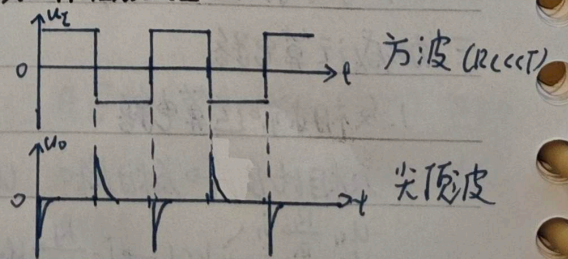 uᵢ
0
t
方波 (RC<<T)
u₀
0
t
尖顶波